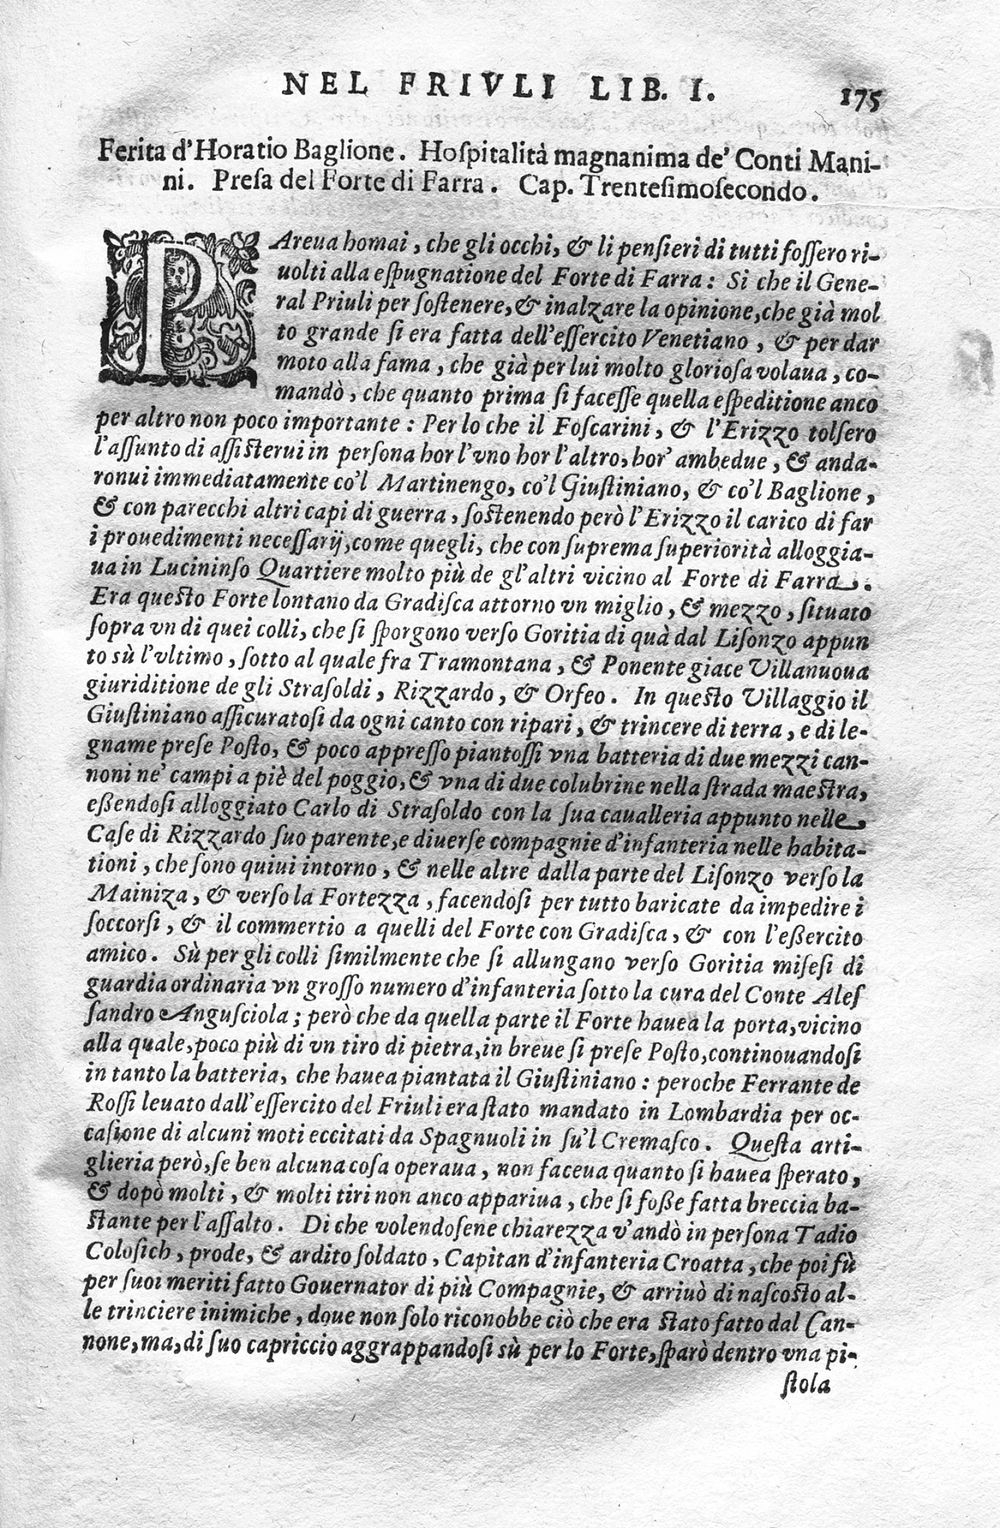 NEL FRIVLI LIB. I. 175
Ferita d'Horatio Baglione. Hoſpitalità magnanima de' Conti Mani-
ni. Preſa del Forte di Farra. Cap. Trentesimoſecondo.
PAreua homai, che gli occhi, & li penſieri di tutti foſſero ri-
uolti alla eſpugnatione del Forte di Farra: Si che il Gene-
ral Priuli per ſoſtenere, & inalzare la opinione, che già mol
to grande ſi era fatta dell'eſſercito Venetiano, & per dar
moto alla fama, che già per lui molto glorioſa volaua, co-
mandò, che quanto prima ſi faceſſe quella eſpeditione anco
per altro non poco importante: Per lo che il Foſcarini, & l'Erizzo tolſero
l'aſſunto di aſſiſterui in perſona hor l'vno hor l'altro, hor' ambedue, & anda-
ronui immediatamente co'l Martinengo, co'l Giuſtiniano, & co'l Baglione,
& con parecchi altri capi di guerra, ſoſtenendo però l'Erizzo il carico di far
i prouedimenti neceſſarij, come quegli, che con ſuprema ſuperiorità alloggia-
ua in Lucininſo Quartiere molto più de gl'altri vicino al Forte di Farra.
Era queſto Forte lontano da Gradiſca attorno vn miglio, & mezzo, ſituato
ſopra vn di quei colli, che ſi ſporgono verſo Goritia di quà dal Liſonzo appun
to sù l'vltimo, ſotto al quale fra Tramontana, & Ponente giace Villanuoua
giuriditione de gli Straſoldi, Rizzardo, & Orfeo. In queſto Villaggio il
Giuſtiniano aſſicuratoſi da ogni canto con ripari, & trincere di terra, e di le-
gname preſe Poſto, & poco appreſſo piantoſſi vna batteria di due mezzi can-
noni ne' campi a piè del poggio, & vna di due colubrine nella ſtrada maeſtra,
eßendoſi alloggiato Carlo di Straſoldo con la ſua caualleria appunto nelle
Caſe di Rizzardo ſuo parente, e diuerſe compagnie d'infanteria nelle habita-
tioni, che ſono quiui intorno, & nelle altre dalla parte del Liſonzo verſo la
Mainiza, & verſo la Fortezza, facendoſi per tutto baricate da impedire i
ſoccorſi, & il commertio a quelli del Forte con Gradiſca, & con l'eßercito
amico. Sù per gli colli ſimilmente che ſi allungano verſo Goritia miſeſi di
guardia ordinaria vn groſſo numero d'infanteria ſotto la cura del Conte Aleſ
ſandro Anguſciola; però che da quella parte il Forte hauea la porta, vicino
alla quale, poco più di vn tiro di pietra, in breue ſi preſe Poſto, continouandoſi
in tanto la batteria, che hauea piantata il Giuſtiniano: peroche Ferrante de
Roſſi leuato dall'eſſercito del Friuli era ſtato mandato in Lombardia per oc-
caſione di alcuni moti eccitati da Spagnuoli in ſu'l Cremaſco. Queſta arti-
glieria però, ſe ben alcuna coſa operaua, non faceua quanto ſi hauea ſperato,
& dopò molti, & molti tiri non anco appariua, che ſi foße fatta breccia ba-
ſtante per l'aſſalto. Di che volendoſene chiarezza v'andò in perſona Tadio
Coloſich, prode, & ardito ſoldato, Capitan d'infanteria Croatta, che poi fù
per ſuoi meriti fatto Gouernator di più Compagnie, & arriuò di naſcoſto al-
le trinciere inimiche, doue non ſolo riconobbe ciò che era ſtato fatto dal Can-
none, ma, di ſuo capriccio aggrappandoſi sù per lo Forte, ſparò dentro vna pi-
ſtola